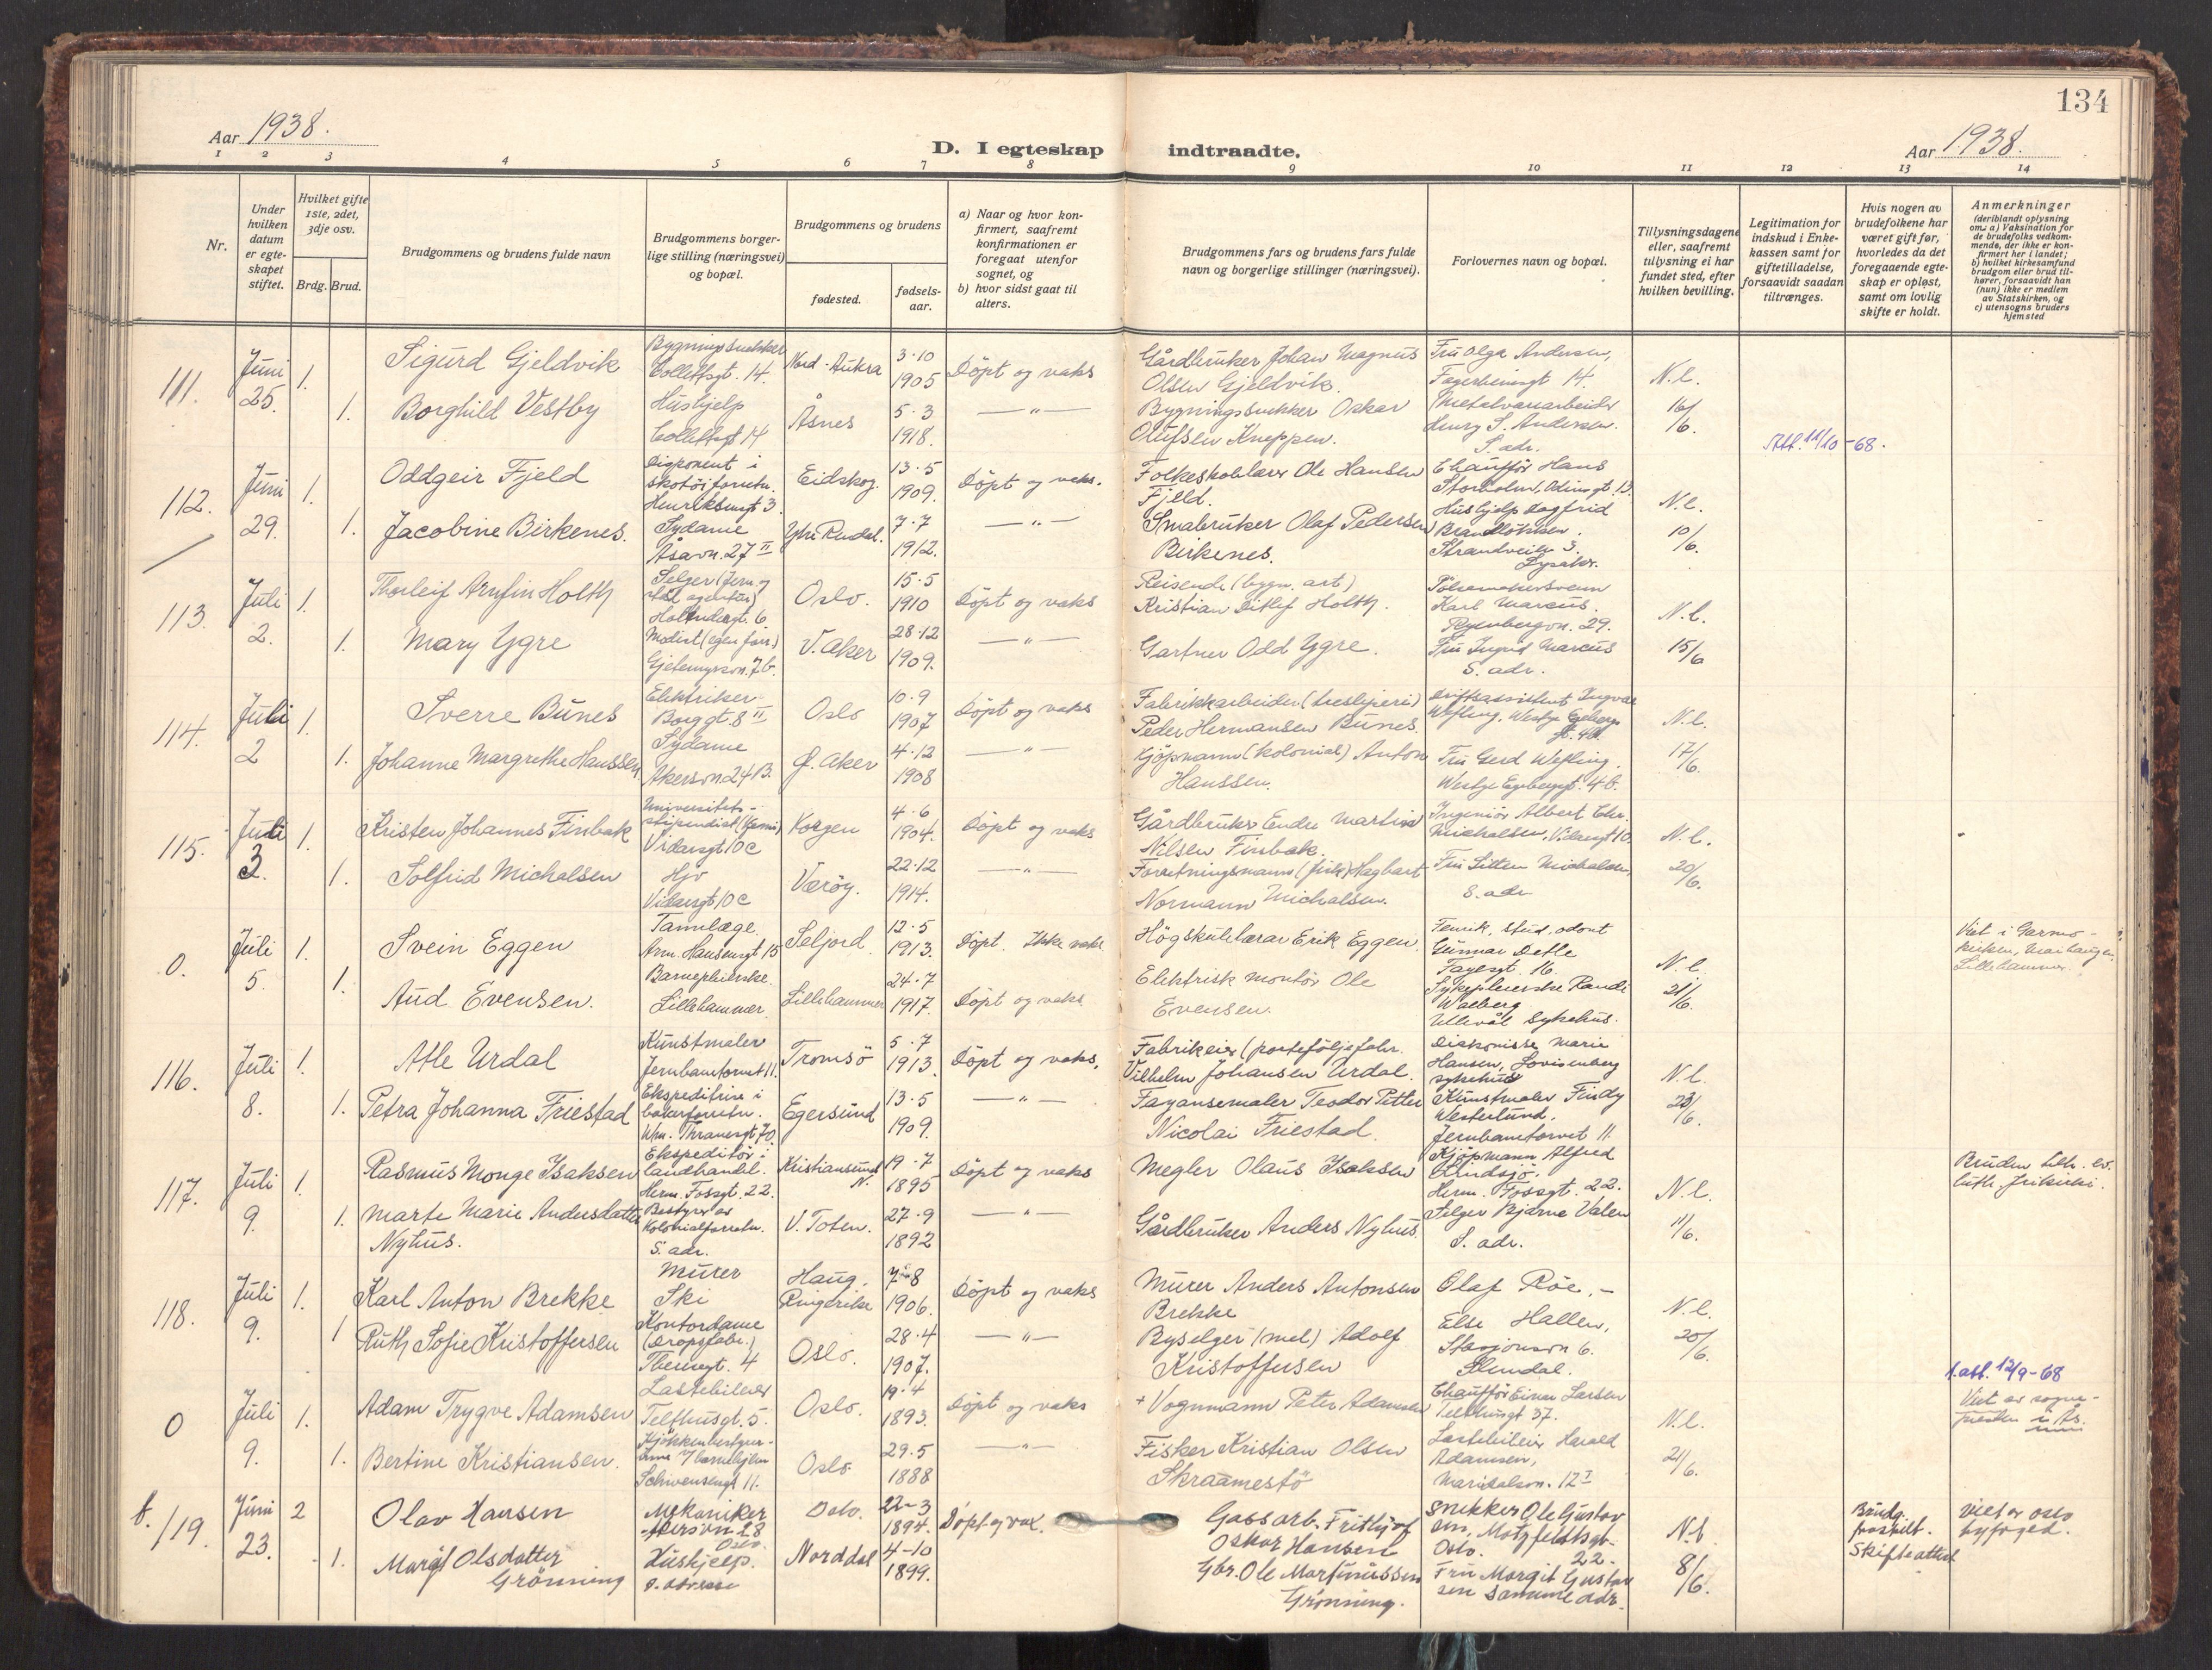 134
Aar 1938.
D. I egteskap indtraadte.
Aar 1938.
1 2 3 4 5 6 7 8 9 10 11 12 13 14
Nr.
Under hvilken datum er egteskapet stiftet.
Hvilket gifte 1ste, 2det, 3dje osv.
Brdg. Brud.
Brudgommens og brudens fulde navn
Brudgommens borgerlige stilling (næringsvei) og bopæl.
Brudgommens og brudens
fødested.
fødselsaar.
a) Naar og hvor konfirmert, saafremt konfirmationen er foregaat utenfor sognet, og
b) hvor sidst gaat til alters.
Brudgommens fars og brudens fars fulde navn og borgerlige stillinger (næringsvei).
Forlovernes navn og bopæl.
Tillysningsdagene eller, saafremt tillysning ei har fundet sted, efter hvilken bevilling.
Legitimation for indskud i Enkekassen samt for giftetilladelse, forsaavidt saadan tiltrænges.
Hvis nogen av brudefolkene har været gift før, hvorledes da det foregaaende egteskap er opløst, samt om lovlig skifte er holdt.
Anmerkninger
(deriblandt oplysning om: a) Vaksination for de brudefolks vedkommende, der ikke er konfirmert her i landet;
b) hvilket kirkesamfund brudgom eller brud tilhører, forsaavidt han (hun) ikke er medlem av Statskirken, og
c) utensogns bruders hjemsted
111. Juni 25. 1. Sigurd Gjeldvik
Bygningssnekker Collettsgt. 14.
Nord-Aukra 3.10 1905 Döpt og vaks
Gårdbruker Johan Magnus Olsen Gjeldvik.
Fru Olga Andersen, Fagerheimsgt 14.
N.l. 16/6.
1. Borghild Vestby
Hushjelp Collettsgt 14
Åsnes 5.3 1918. —"—
Bygningssnekker Oskar Olufsen Kneppen.
Metalvarearbeider Henry S. Andersen. S. adr.
Att. 11/10-68.
112. Juni 29. 1. Oddgeir Fjeld
Disponent i skotöiforretn. Henriksensgt 3
Eidskog. 13.5 1909. Döpt og vaks.
Folkeskolelærer Ole Hansen Fjeld.
Chauffør Hans Storholm, Odinsgt. 13.
N.l. 10/6.
1. Jacobine Birkenes.
Sydame Åsavn. 27 II
Ytre Rendal. 7.7 1912. —"—
Småbruker Olaf Pedersen Birkenes.
Hushjelp Dagfrid Brandlökken. Strandveien 3. Lysaker.
113. Juli 2. 1. Thorleif Arnfin Holth
Selger (Jern og stål agentur) Holtndergt. 6.
Oslo. 15.5 1910 Döpt og vaks
Reisende (bygn. art) Kristian Ditlef Holth.
Pölsemakersvenn Karl Marcus. Ryenbergvn. 29.
N.l. 15/6
1. Mary Ygre
Modist (egen forr.) Gjetemyrsvn. 7b.
V. Aker 28.12 1909. —"—
Gartner Odd Ygre.
Fru Ingrid Marcus S. adr.
114. Juli 2 1. Sverre Bunes
Elektriker Borggt. 8 II
Oslo 10.9 1907 Döpt og vaks
Fabrikkarbeider (tresliperi) Peder Hermansen Bunes.
Driftsassistent Ingvar Wefling, Westye Egebergs gt. 4b.
N.l. 17/6.
1. Johanne Margrethe Hanssen
Sydame Akersvn 24 B.
Ø. Aker 4.12 1908 —"—
Kjöpmann (kolonial) Anton Hanssen.
Fru Gerd Wefling. Westye Egebergsgt. 4b.
115. Juli 3. 1. Kristen Johannes Finbak
Universitetsstipendiat (Kjemi) Vidarsgt 10c
Korgen 4.6 1904. Döpt og vaks
Gårdbruker Endre Martin Nilsen Finbak.
Ingeniör Albert Chr. Michalsen, Vidarsgt 10.
N.l. 20/6.
1. Solfrid Michalsen
Hjv Vidarsgt 10c
Værøy. 22.12 1914. —"—
Forretningsmann (fisk) Hagbart Normann Michalsen.
Fru Sitten Michalsen. S. adr
0. Juli 5. 1. Svein Eggen
Tannlæge. Arm. Hansensgt 15
Seljord. 12.5 1913. Döpt. Ikke vaks
Högskulelærar Erik Eggen.
Fenrik, stud. odont Gunnar Detle Fayesgt. 16.
N.l. 21/6.
Viet i Garmokirken, Maihaugen, Lillehammer.
1. Aud Evensen.
Barnepleierske. Lillehammer.
Lillehammer 24.7 1917. Döpt og vaks.
Elektrisk montör Ole Evensen.
Sykepleierske Randi Walberg. Ullevål Sykehus.
116. Juli 8. 1. Atle Urdal
Kunstmaler Jernbanetorvet 11.
Tromsö 5.7 1913. Döpt og vaks.
Fabrikeier (porteföljefabr. Vilhelm Johansen Urdal.
Diakonisse Marie Hansen, Lovisenberg sykehus
N.l. 23/6.
1. Petra Johanna Friestad
Ekspeditrise i bakerforretn. Wm. Thranesgt 70.
Egersund 13.5 1909. —"—
Fayansemaler Teodor Petter Nicolai Friestad.
Kunstmaler Findy Westerlund. Jernbanetorvet 11.
117. Juli 9. 1. Rasmus Monge Isaksen
Ekspeditör i landhandel. Herm. Fossgt. 22.
Kristiansund N. 19.7 1895 Döpt og vaks
Megler Olaus Isaksen
Kjöpmann Alfred Lindsjö. Herm. Fossgt. 22.
N.l. 11/6.
Bruden tilh. ev. luth. frikirke.
1. Marte Marie Andersdatter Nyhus.
Bestyrer av Kolonialforretn. S. adr.
V. Toten. 27.9 1892 —"—
Gårdbruker Anders Nyhus.
Selger Bjarne Valen S. adr.
118. Juli 9. 1. Karl Anton Brekke
Murer Ski
Haug. Ringerike 7.8 1906. Döpt og vaks
Murer Anders Antonsen Brekke
Olaf Röe.
N.l. 20/6.
1 Ruth Sofie Kristoffersen
Kontordame (dropsfabr.) Theresgt. 4
Oslo. 28.4 1907. —"—
Byselger (mel) Adolf Kristoffersen
Else Hallen, Stasjonsvn 6. Slemdal.
0 Juli 9. 1. Adam Trygve Adamsen
Lastebileier Telthusgt. 5.
Oslo. 19.4 1893. Döpt og vaks
+ Vognmann Peter Adamsen
Chauffør Einar Larsen Telthusgt 37.
N.l. 21/6.
1. att. 12/9-68
Viet av sognepresten i Ås.
1. Bertine Kristiansen.
Schwensensgt 11.
Oslo 29.5 1888 —"—
Fisker Kristian Olsen Skraamestö
Lastebileier Harald Adamsen, Maridalsvn. 12 I
b. 119. Juni 23. 2 Olav Hansen
Mekaniker Akersvn 28 Oslo.
Oslo. 22-3 1894. Döpt og vax.
Gassarb. Fritjof Oskar Hansen
Snekker Ole Gustavsen, Motzfeldtsgt. Oslo. 22.
N.l. 8/6.
Brudg. fraskilt. Skifteattest
Viet av Oslo byfoged.
1. Margit Olsdatter Grönning
Hushjelp. s. adresse
Norddal 4-10 1899.
Gbr. Ole Martinussen Grönning.
Fru Margit Gustavsen samme adr.